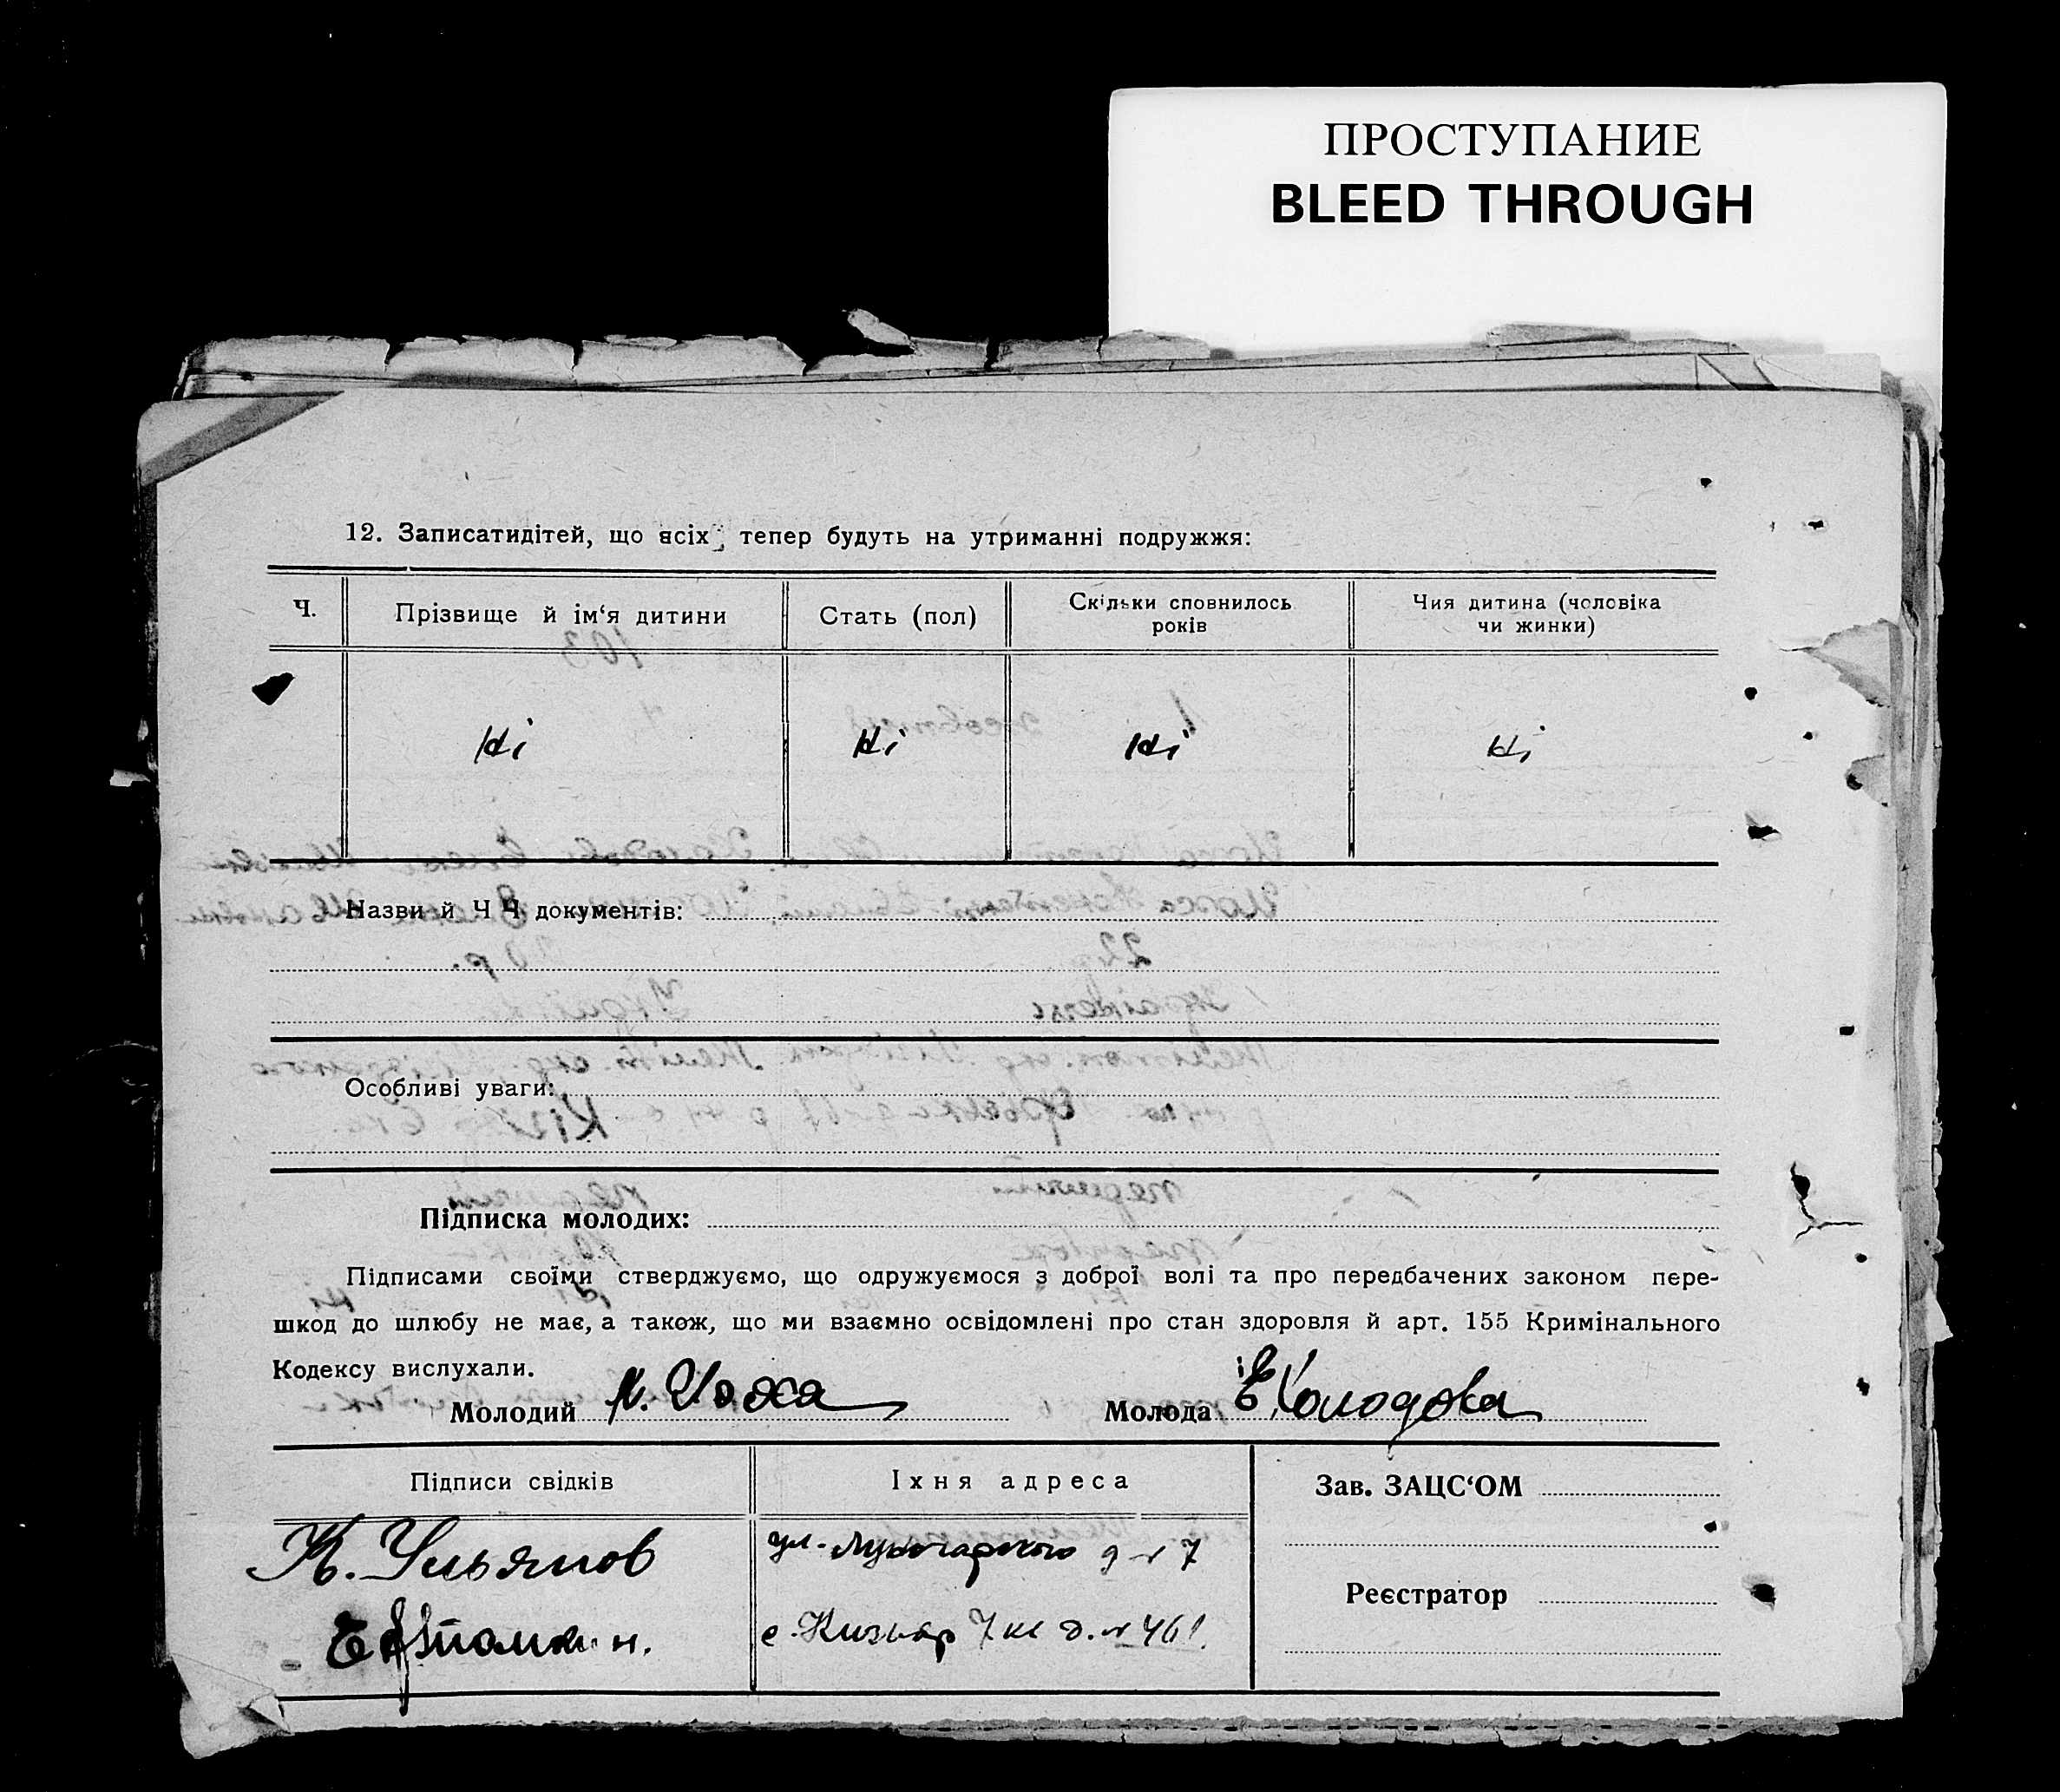 ПРОСТУПАНИЕ
BLEED THROUGH
12. Записатидітей, що всіх тепер будуть на утриманні подружжя:
Ч.
Прізвище й ім'я дитини
Стать (пол)
Скільки сповнилось
років
Чия дитина (чоловіка
чи жинки)
Ні
Ні
Ні
Ні
Назви й Ч Ч документів:
Особливі уваги:
Підписка молодих:
Підписами своїми стверджуємо, що одружуємося з доброї волі та про передбачених законом пере-
шкод до шлюбу не має, а також, що ми взаємно освідомлені про стан здоровля й арт. 155 Кримінального
Кодексу вислухали.
Молодий
Молода Е Колодова
Підписи свідків
Їхня адреса
Зав. ЗАЦС'ОМ
К. Ульянов
ул. Луначарского д № 7
Реєстратор
с. Кизыяр 7 кв д. № 461.